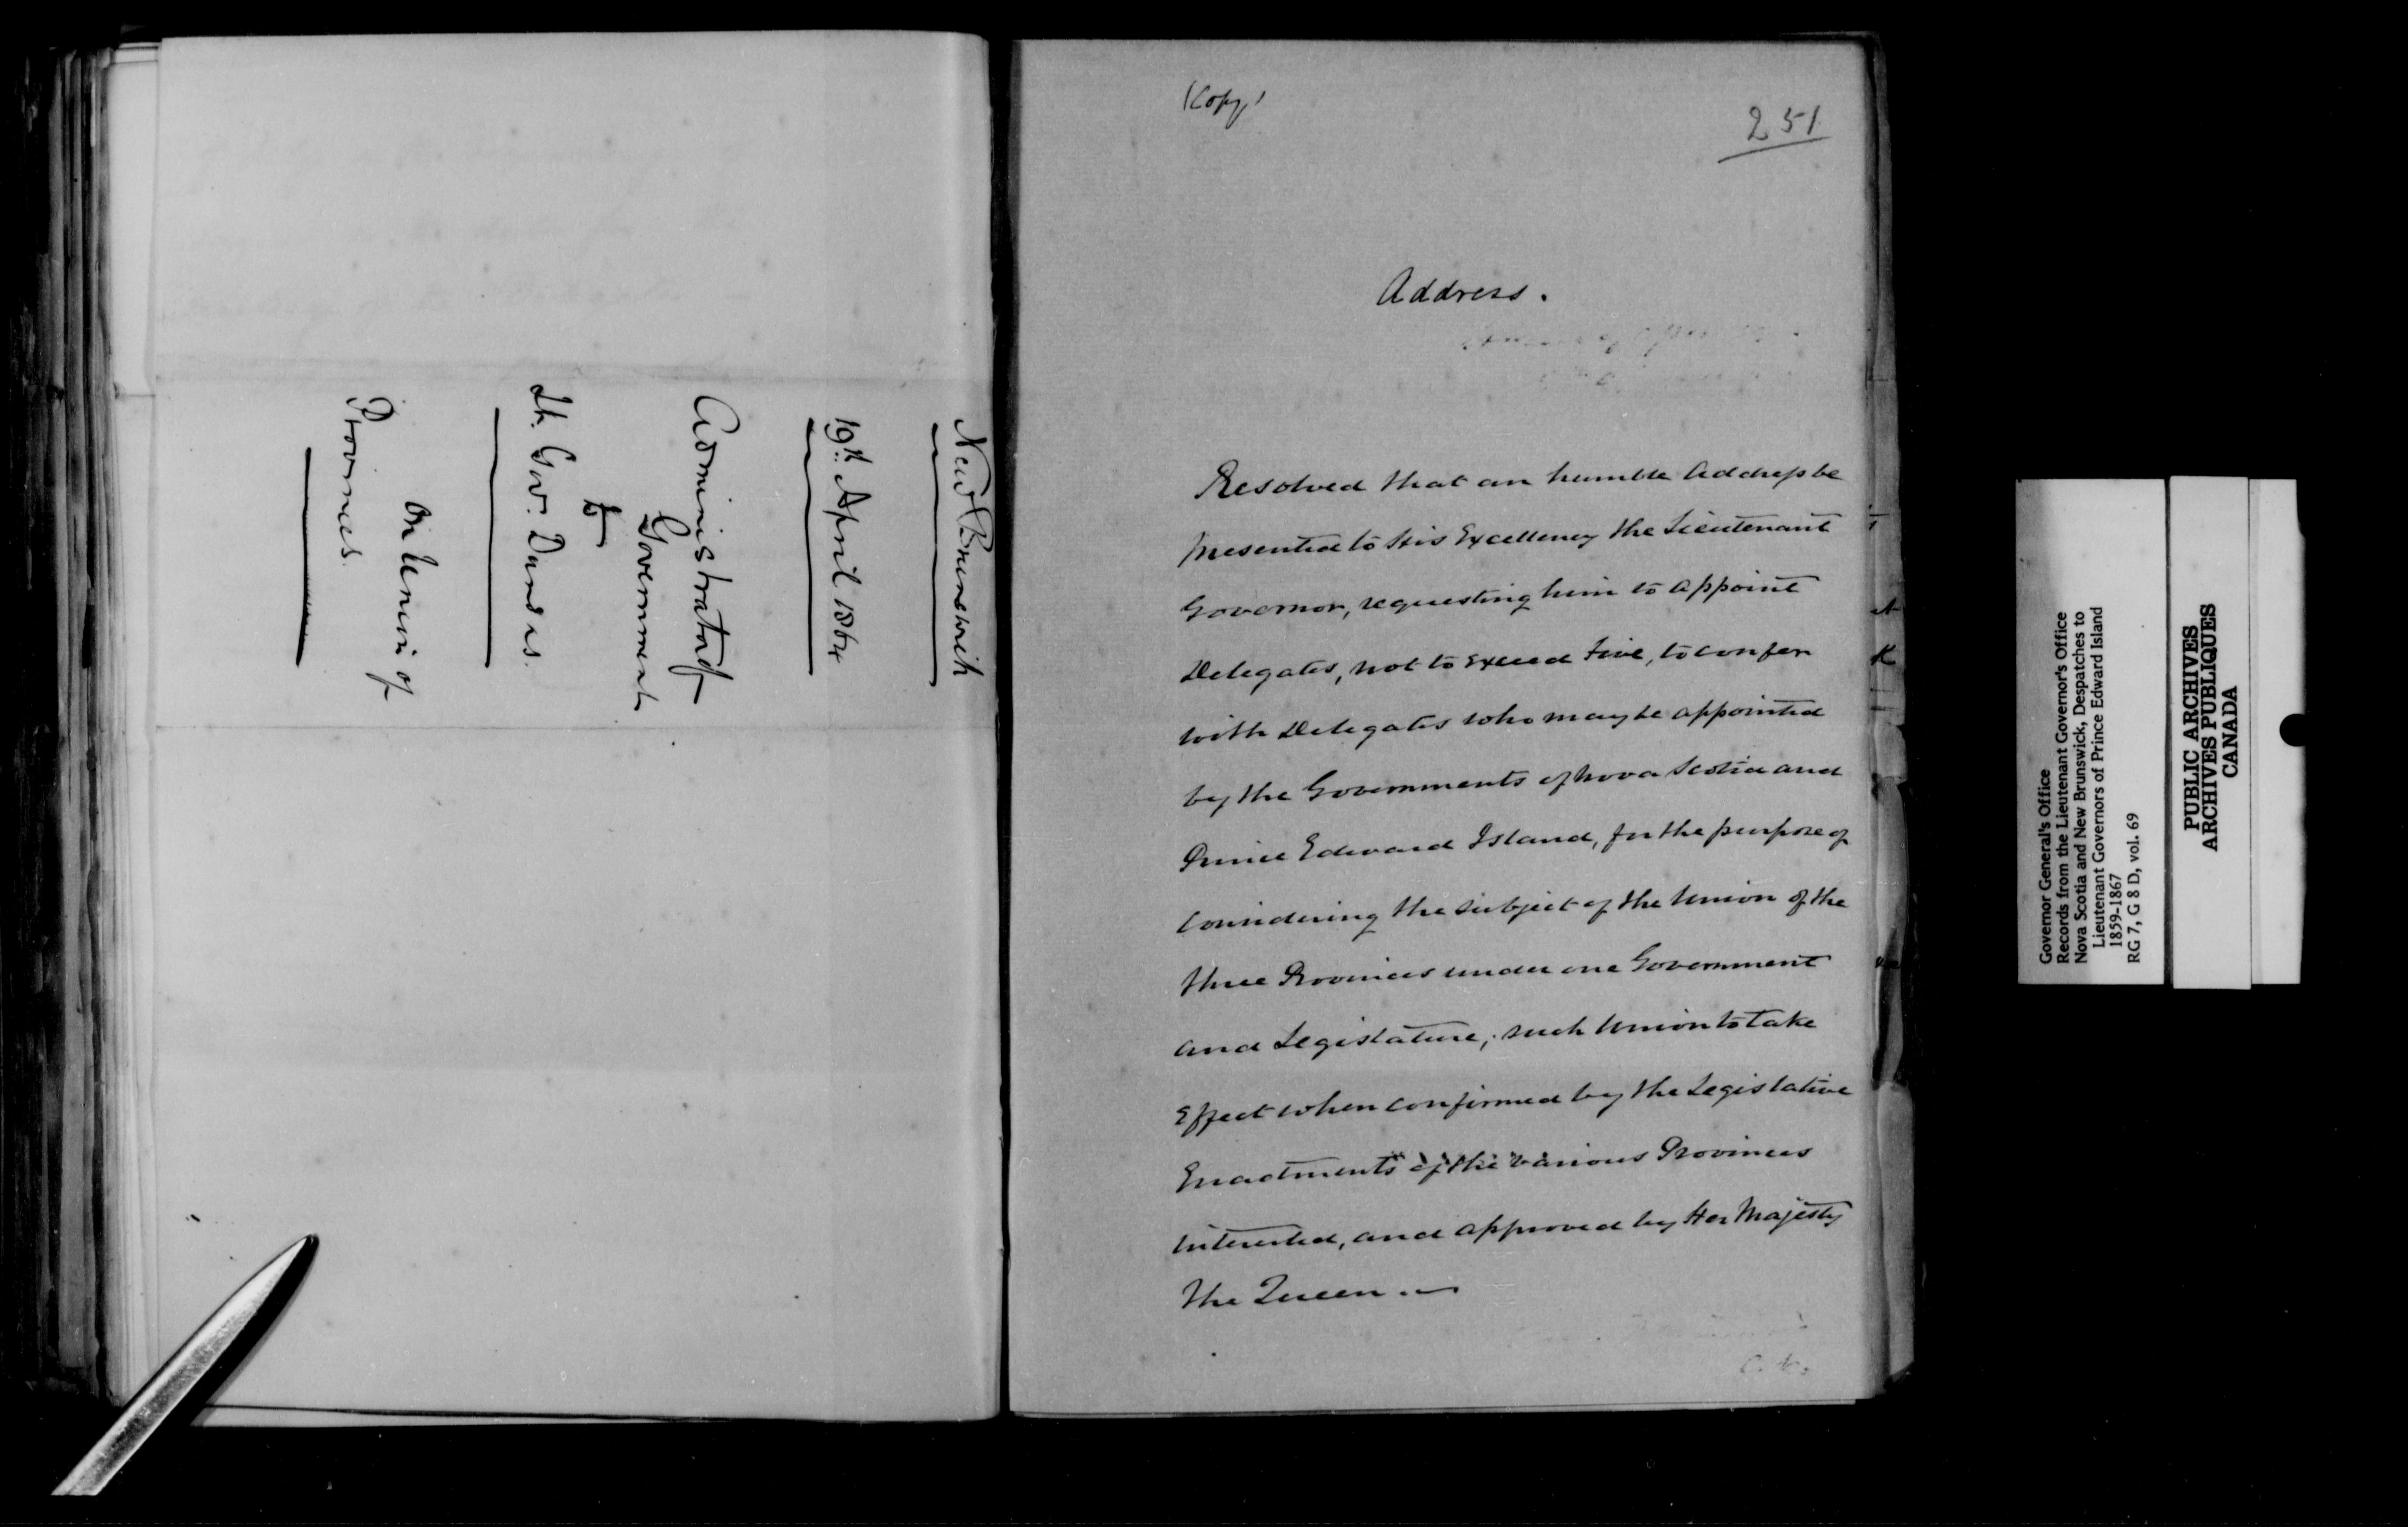 New Brunswick
19th. April 1864
Administrator of
Government
to
Lt. Gov. Dundas.
On Union of
Provinces.
(Copy)
251
Address.
Resolved that an humble Address be
presented to His Excellency the Lieutenant
Governor, requesting him to appoint
Delegates, not to exceed five, to confer
with Delegates who may be appointed
by the Governments of Nova Scotia and
Prince Edward Island, for the purpose of
considering the subject of the Union of the
three Provinces under one Government
and Legislature; such Union to take
Effect when confirmed by the Legislative
Enactments of the various Provinces
interested, and approved by Her Majesty
the Queen.
Governor General's Office
Records from the Lieutenant Governor's Office
Nova Scotia and New Brunswick, Despatches to
Lieutenant Governors of Prince Edward Island
1859-1867
RG 7, G 8 D, vol. 69
PUBLIC ARCHIVES
ARCHIVES PUBLIQUES
CANADA